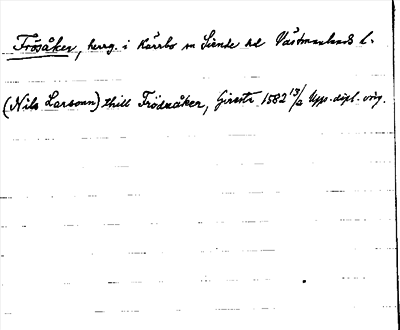 Frösåker, herrg. i Kärrbo sn Siende hd Västmanlands l.
(Nils Larsonn) thill Frödzåker, 1582 13/2 Upps. dipl. orig.